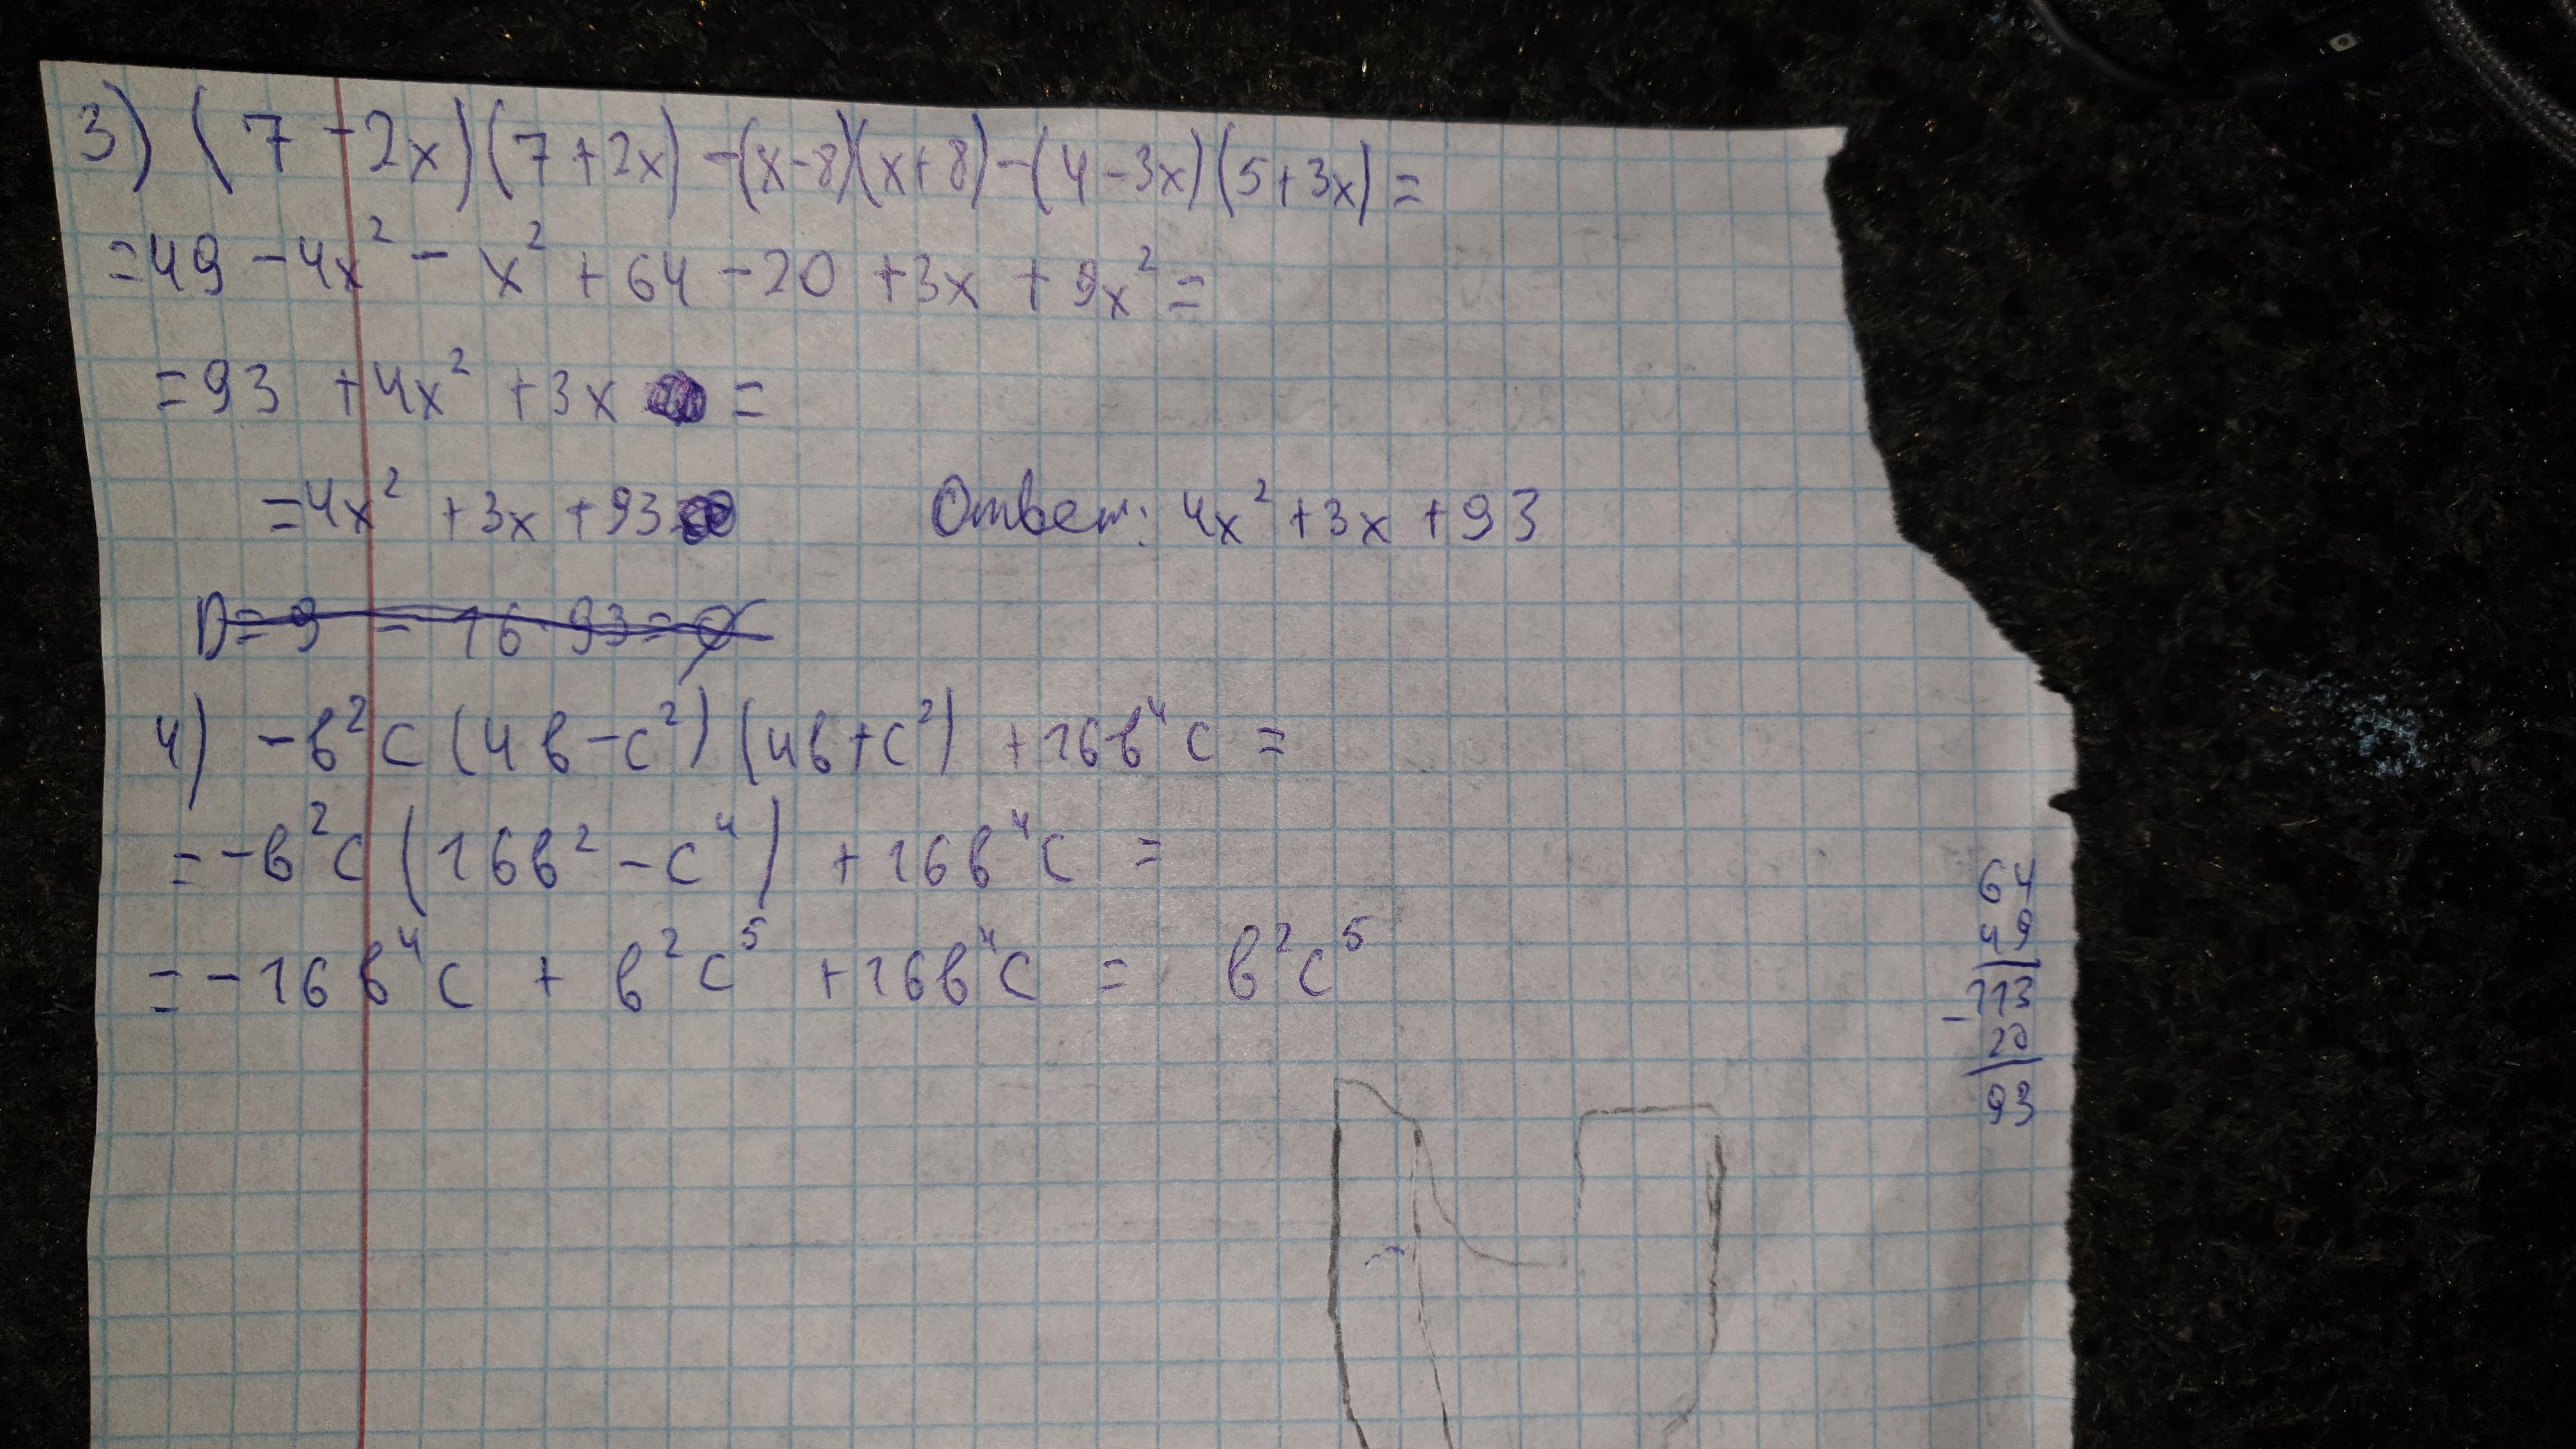 3) (7 - 2x)(7 + 2x) - (x - 8)(x + 8) - (4 - 3x)(5 + 3x) =
= 49 - 4x² - x² + 64 - 20 + 3x + 9x² =
= 93 + 4x² + 3x =
= 4x² + 3x + 93 Ответ: 4x² + 3x + 93
D = 9 - 16 · 93 = ∅
4) -в²с (4в - с²)(4в + с²) + 16в⁴с =
= -в²с (16в² - с⁴) + 16в⁴с =
= -16в⁴с + в²с⁵ + 16в⁴с = в²с⁵
64
49
-113
20
93